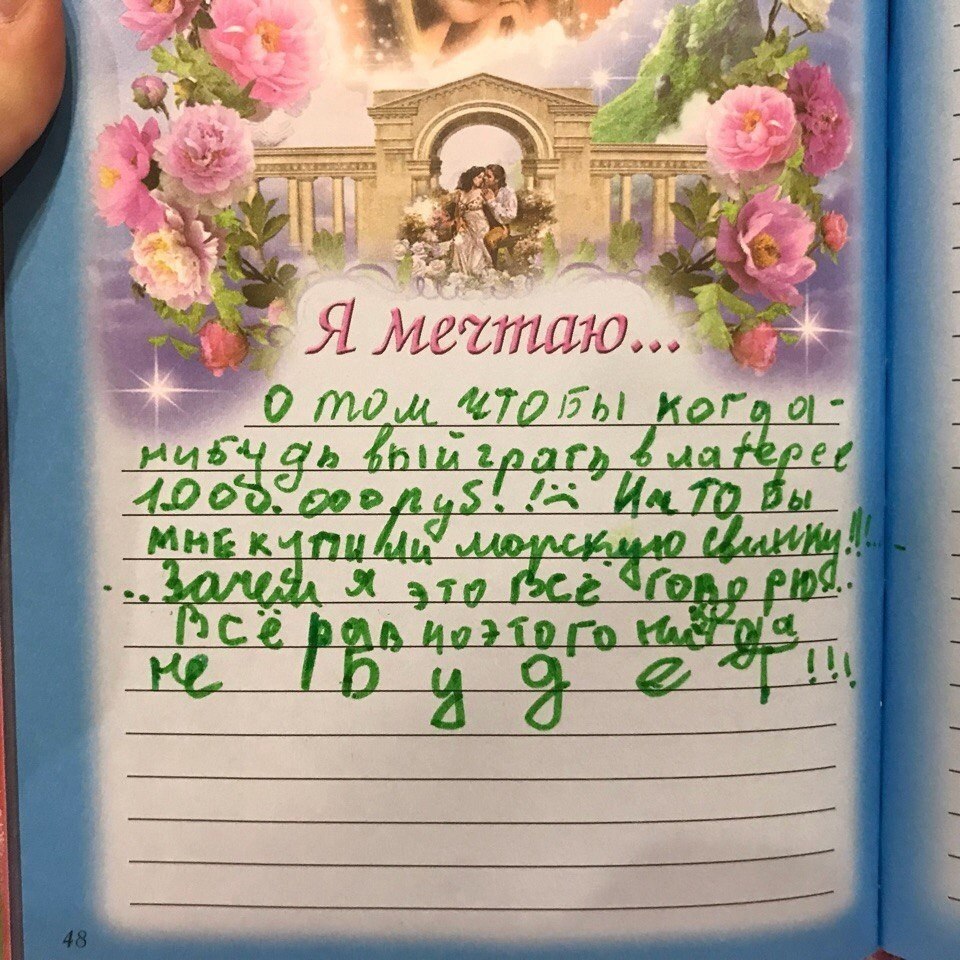 Я мечтаю...
О том чтобы когда-
нибудь выйграть в латерее
1.000.000 руб!!☹ И чтобы
мне купили морскую свинку!!!...
...Зачем я это всё говорю..
Всё равно этого никогда
не будет!!!
48